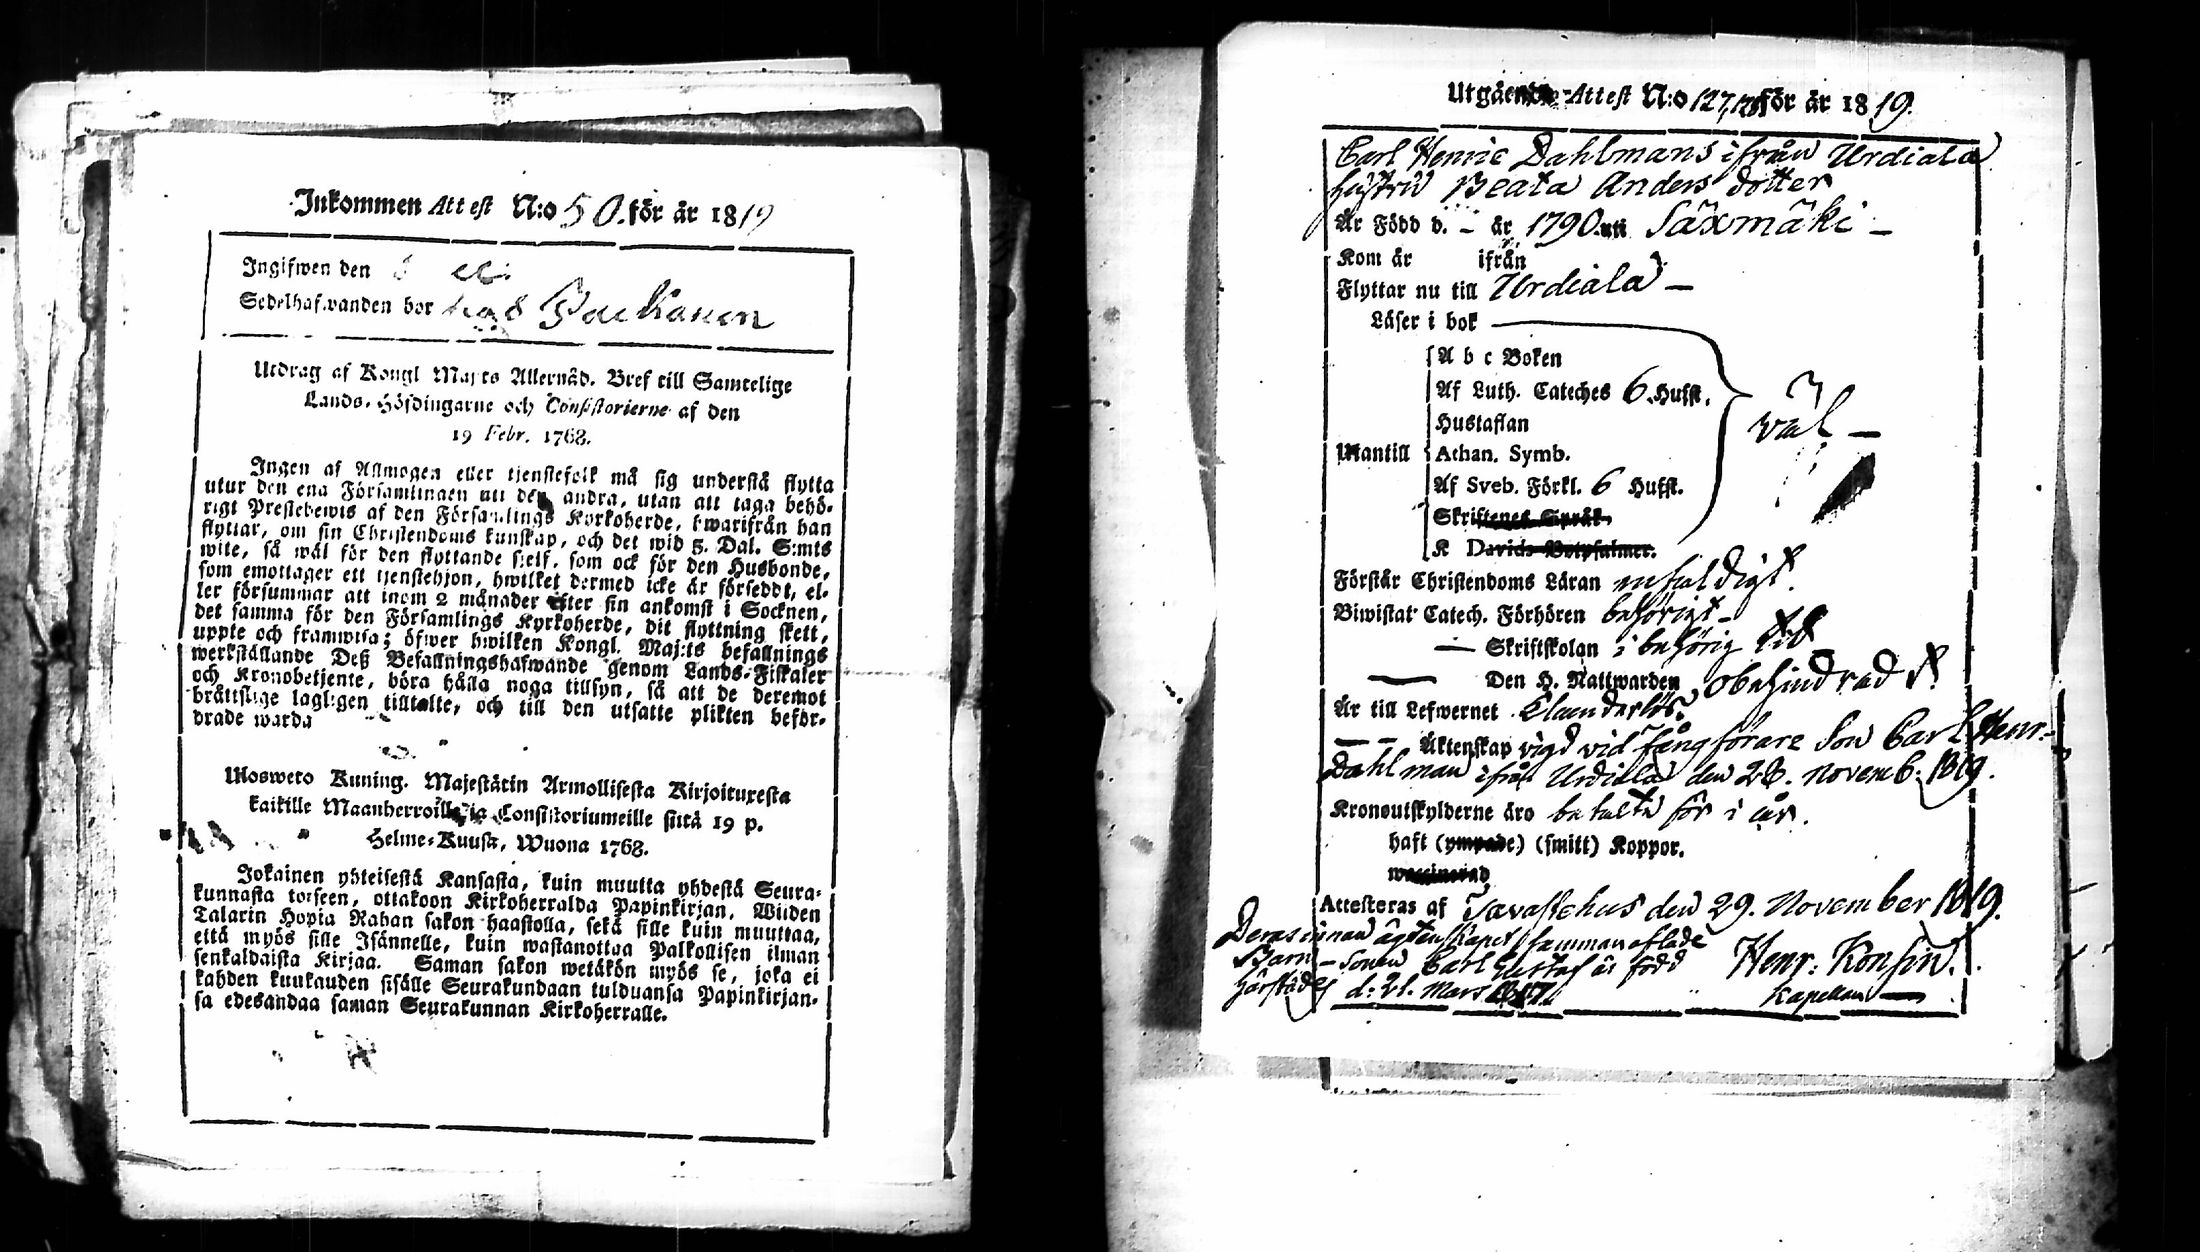 Inkommen Attest N:o 50. för år 1819
Ingifwen den
Sedelhafwanden bor hos
Utdrag af Kongl Maj:ts Allernåd. Bref till Samtelige
Lands-Höfdingarne och Consistorierne af den
19 Febr. 1768.
Ingen af Allmogen eller tjenstefolk må sig understå flytta
utur den ena Församlingen uti den andra, utan att taga behö-
rigt Prestebewis af den Församlings Kyrkoherde, hwarifrån han
flyttar, om sin Christendoms kunskap, och det wid 5. Dal. S:mts
wite, så wäl för den flyttande sielf, som ock för den Husbonde,
som emottager ett tjenstehjon, hwilket dermed icke är försedt, el-
ler försummar att inom 2 månader efter sin ankomst i Socknen,
det samma för den Församlings Kyrkoherde, dit flyttning skett,
uppte och framwisa; öfwer hwilken Kongl. Maj:ts befallnings
werkställande Deß Befallningshafwande genom Lands-Fiskaler
och Kronobetjente, böra hålla noga tillsyn, så att de deremot
bråttslige lagligen tilltalte, och till den utsatte plikten beför-
drade warda
Ulosweto Kuning. Majestätin Armollisesta Kirjoituxesta
kaikille Maanherroille ja Consistoriumeille siitä 19 p.
Helme-Kuusa, Wuona 1768.
Jokainen yhteisestä Kansasta, kuin muutta yhdestä Seura-
kunnasta toiseen, ottakoon Kirkoherralda Papinkirjan, Wiiden
Talarin Hopia Rahan sakon haastolla, sekä sille kuin muuttaa,
että myös sille Isännelle, kuin wastanottaa Palkollisen ilman
senkaldaista Kirjaa. Saman sakon wetäkön myös se, joka ei
kahden kuukauden sisälle Seurakundaan tulduansa Papinkirjan-
sa edesandaa saman Seurakunnan Kirkoherralle.
Utgående-Attest N:o 127, 128 för år 1819.
Carl Henric Dahlmans ifrån Urdiala
hustru Beata Anders dotter
Är Född d. – år 1790. uti Säxmäki –
Kom år ifrån
Flyttar nu till Urdiala –
Läser i bok
A b c Boken
Af Luth. Cateches 6 Hufst.
Hustaflan
väl –
Utantill Athan. Symb.
Af Sveb. Förkl. 6 Hufst.
Skriftenes Språk
K Davids Botpsalmer.
Förstår Christendoms Läran enfaldigt.
Biwistat Catech. Förhören behörigt –
— Skriftskolan i behörig tid
— Den H. Nattwarden obehindrad
Är till Lefwernet klanderlös.
— – Äktenskap vigd vid fångförare Son Carl Henr.
Dahlman ifrån Urdiala den 28. Novemb: 1819.
Kronoutskylderne äro betalte för i år.
haft (ympade) (smitt) Koppor.
waccinerad
Attesteras af Tavastehus den 29. November 1819.
Deras innan ägtenskapet sammanaflade
Barn – Sonen Carl Gustaf är född
d: 21. Mars 1817.
Henr: Konsin.
Kapellan —